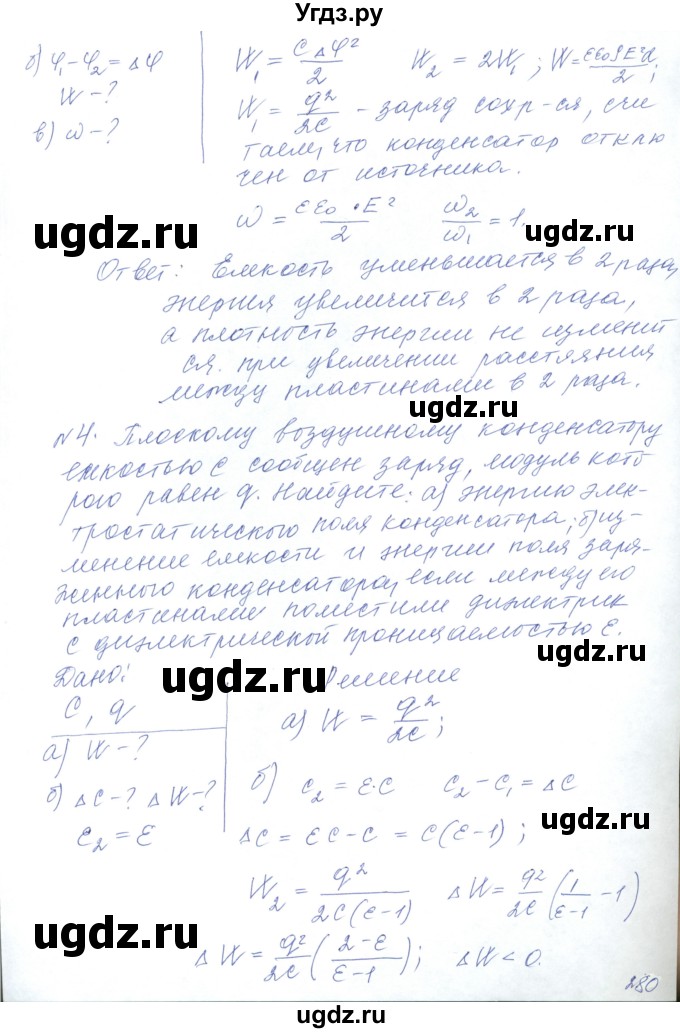 Угдз.ру
б) φ₁-φ₂ = Δφ
W - ?
в) ω - ?
W₁ = CΔφ²/2   W₂ = 2W₁ ; W = εε₀SE²d/2 ;
W₁ = q²/2C - заряд сохр-ся, счи
таем, что конденсатор отклю
чен от источника.
ω = εε₀·E²/2   ω₂/ω₁ = 1.
ugdz.ru ugdz.ru
Ответ: Емкость уменьшается в 2 раза,
энергия увеличится в 2 раза,
а плотность энергии не изменит
ся при увеличении расстояния
между пластинами в 2 раза.
ugdz.ru
№4. Плоскому воздушному конденсатору
емкостью C сообщен заряд, модуль кото
рого равен q. Найдите: а) энергию элек-
тростатического поля конденсатора; б) из-
менение емкости и энергии поля заря-
женного конденсатора, если между его
пластинами поместили диэлектрик
с диэлектрической проницаемостью ε.
Дано: ugdz.ru Решение
C, q
а) W - ?
б) ΔC - ? ΔW - ?
ε₂ = ε
а) W = q²/2C ;
б) C₂ = ε·C   C₂ - C₁ = ΔC
ugdz.ru
ΔC = εC - C = C(ε-1) ;
W₂ = q²/2C(ε-1)   ΔW = q²/2C (1/ε-1 - 1)
ugdz.ru
ΔW = q²/2C (2-ε/ε-1) ;   ΔW < 0.
280
ugdz.ru